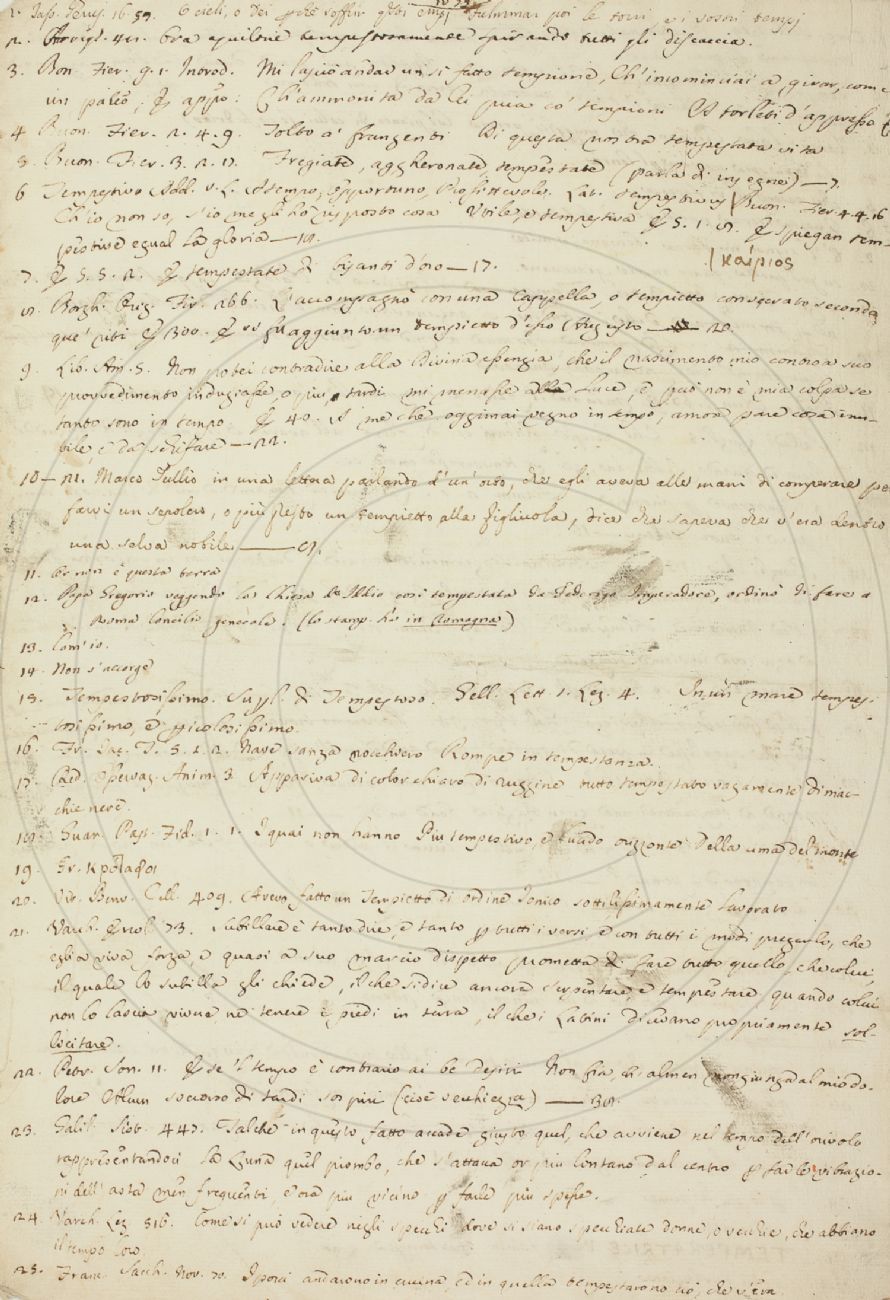 1. Tass. Gerus. 16. 59. O cieli, o Dei perchè soffrir questi empj Fulminar poi le torri, e i vostri tempj
2. Arrigh. 41. Ora aquilone tempestosamente spirando tutti gli discaccia.
3. Bon. Fier. 9. 1. Introd. Mi lasciò andar un sì fatto tempione, Ch'incominciai a girar, come
un paléo, E appo: Ch'ammonita da lei pria co' tempioni A storleti d'appresso
4 Buon. Fier. 2. 4. 9. Tolto a' frangenti Di questa nostra tempestata vita
5. Buon. Fier. 3. 2. 17. Fregiate, aggheronate tempestate (parla di insegne) — 7.
6 Tempestivo Add. V. L. A tempo, Opportuno, Profittevole. Lat. tempestivus Buon. Fier. 4. 4. 16
Ch'io non so, s'io me gli ho risposto cosa Utile, e tempestiva E 5. 1. E spiegan tem-
pestive egual la gloria — 18.
| καίριος
7. E 5. 5. 2. E tempestate di bisanti d'oro — 17.
8. Borgh. Orig. Fir. 166. L'accompagnò con una Cappella, o tempietto consecrato secondo
que' riti E 300. E vi fu aggiunto un tempietto d'esso Augusto — 20.
9. Lib. Am. 5. Non potei contradire alla divina essenzia, che il nascimento mio contra a suo
provvedimento indugiasse, o più tardi mi menasse alla luce, e però non è mia colpa se
tanto sono in tempo. E 40. A me che oggimai vegno in tempo, amor pare cosa inu-
bile, e da schifare — 22.
10 — 21. Marco Tullio in una lettera parlando d'un orto, che egli aveva alle mani di comperare pe
farvi un sepolcro, o più presto un tempietto alla figliuola, dice che sapeva che v'era dentro
una selva nobile — 8.
11. Or non è questa terra
12. Papa Gregorio veggendo la Chiesa di Iddio così tempestata da Federigo Imperadore, ordinò di fare a
Roma Concilio generale. (lo stamp. ha in Romagna)
13. Com'io.
14. Non s'accorge
15. Tempestosissimo. Superl. di Tempestoso. Gell. Lett. 1. Lez. 4. In un mare tempes-
tosissimo, e pericolosissimo.
16. Fr. Iac. T. 5. 1. 2. Nave sanza nocchiero Rompe in tempestanza.
17. Red. Osservaz. Anim. 3. Appariva di color chiaro di ruggine tutto tempestato vagamente di mac-
chie nere.
18. Guar. Past. Fid. 1. 1. I quai non hanno Più tempestivo, e lucido orizzonte Della cima del monte
19. Gr. κρόταφοι
20. Vit. Benv. Cell. 409. Aveva fatto un Tempietto di ordine Ionico sottilissimamente lavorato
21. Varch. Ercol. 73. Subillare è tanto dire, e tanto per tutti i versi e con tutti i modi pregarlo, che
egli a viva forza, e quasi a suo marcio dispetto prometta di fare tutto quello, che colui,
il quale lo subilla gli chiede, il che si dice ancora serpentare, e tempestare quando colui
non lo lascia vivere nè tenere i piedi in terra, il che i Latini dicevano propriamente sol-
licitare.
22. Petr. Son. 11. E se 'l tempo è contrario ai be' desiri Non fia ch'almen non giunga al mio do-
lore Alcun soccorso di tardi sospiri (cioè vecchiezza) — 38.
23. Galil. Sist. 447. Talchè in questo fatto accade giusto quel, che avviene nel tempo dell'oriuolo
rappresentandoci la Luna quel piombo, che s'attacca or più lontano dal centro per far le vibrazio-
ni dell'asta men frequenti, e ora più vicino per farle più spesse.
24. Varch. Lez. 516. Come si può vedere negli specchi dove si siano specchiate donne, o vecchie, che abbiano
il tempo loro.
25. Franc. Sacch. Nov. 70. I porci andarono in cucina, ed in quella tempestarono ciò, che v'era.